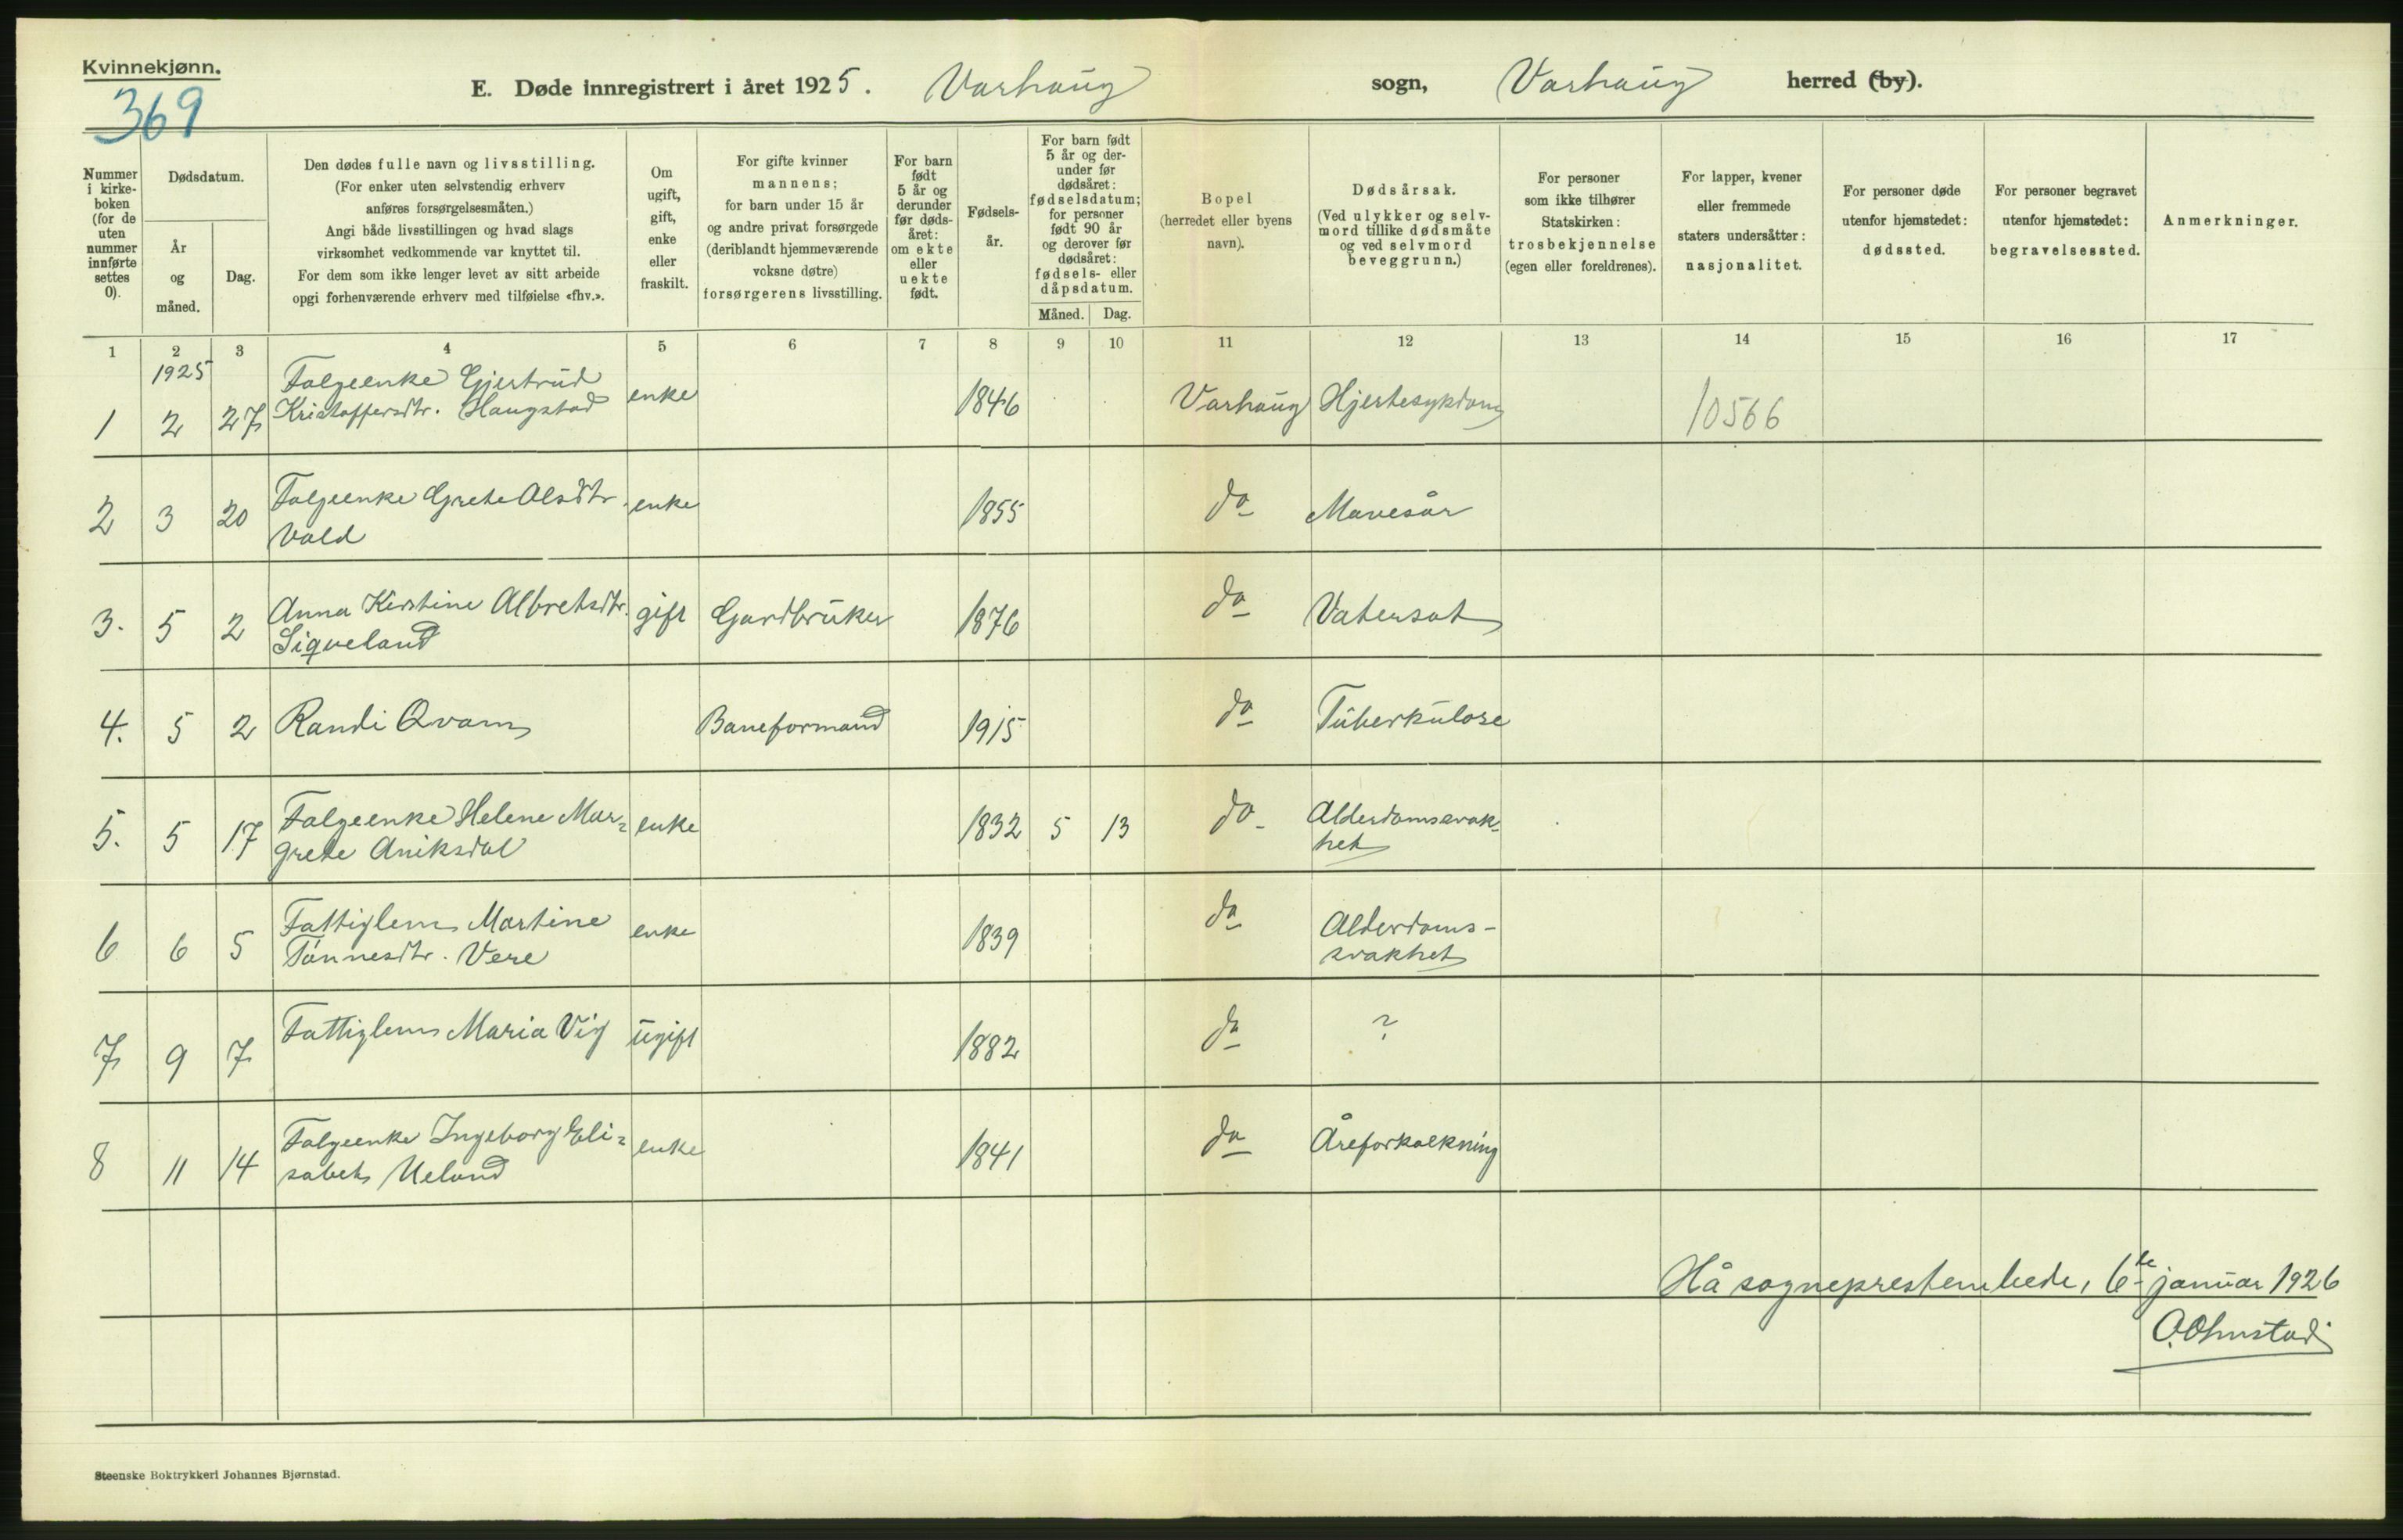 Kvinnekjønn.
369
E. Døde innregistrert i året 1925. Varhaug sogn, Varhaug herred (by).
Nummer
i kirke-
boken
(for de
uten
nummer
innførte
settes
0).
Dødsdatum.
År
og
måned.
Dag.
Den dødes fulle navn og livsstilling.
(For enker uten selvstendig erhverv
anføres forsørgelsesmåten.)
Angi både livsstillingen og hvad slags
virksomhet vedkommende var knyttet til.
For dem som ikke lenger levet av sitt arbeide
opgi forhenværende erhverv med tilføielse «fhv.».
Om
ugift,
gift,
enke
eller
fraskilt.
For gifte kvinner
mannens;
for barn under 15 år
og andre privat forsørgede
(deriblandt hjemmeværende
voksne døtre)
forsørgerens livsstilling.
For barn
født
5 år og
derunder
før døds-
året:
om ekte
eller
uekte
født.
Fødsels-
år.
For barn født
5 år og der-
under før
dødsåret:
fødselsdatum;
for personer
født 90 år
og derover før
dødsåret:
fødsels- eller
dåpsdatum.
Måned.
Dag.
Bopel
(herredet eller byens
navn).
Dødsårsak.
(Ved ulykker og selv-
mord tillike dødsmåte
og ved selvmord
beveggrunn.)
For personer
som ikke tilhører
Statskirken:
trosbekjennelse
(egen eller foreldrenes).
For lapper, kvener
eller fremmede
staters undersåtter:
nasjonalitet.
For personer døde
utenfor hjemstedet:
dødssted.
For personer begravet
utenfor hjemstedet:
begravelsessted.
Anmerkninger.
1 2 3 4 5 6 7 8 9 10 11 12 13 14 15 16 17
1925
1 2 27 Folgeenke Gjertrud
Kristoffersdtr. Haugstad enke 1846 Varhaug Hjertesykdom 10566
2 3 20 Folgeenke Grete Olsdtr.
Vold enke 1855 do Mavesår
3. 5 2 Anna Kirstine Albretsdtr.
Siqveland gift Gardbruker 1876 do Vatersot
4. 5 2 Randi Qvam Baneformand 1915 do Tuberkulose
5. 5 17 Folgeenke Helene Mar-
grete Aniksdal enke 1832 5 13 do Alderdomssvak-
het
6 6 5 Fattiglem Martine
Tønnesdtr. Vere enke 1839 do Alderdoms-
svakhet
7 9 7 Fattiglem Maria Vig ugift 1882 do ?
8 11 14 Folgeenke Ingeborg Eli-
sabet Ueland enke 1841 do Åreforkalkning
Hå sogneprestembede, 6te januar 1926
O. Ohnstad
Steenske Boktrykkeri Johannes Bjørnstad.